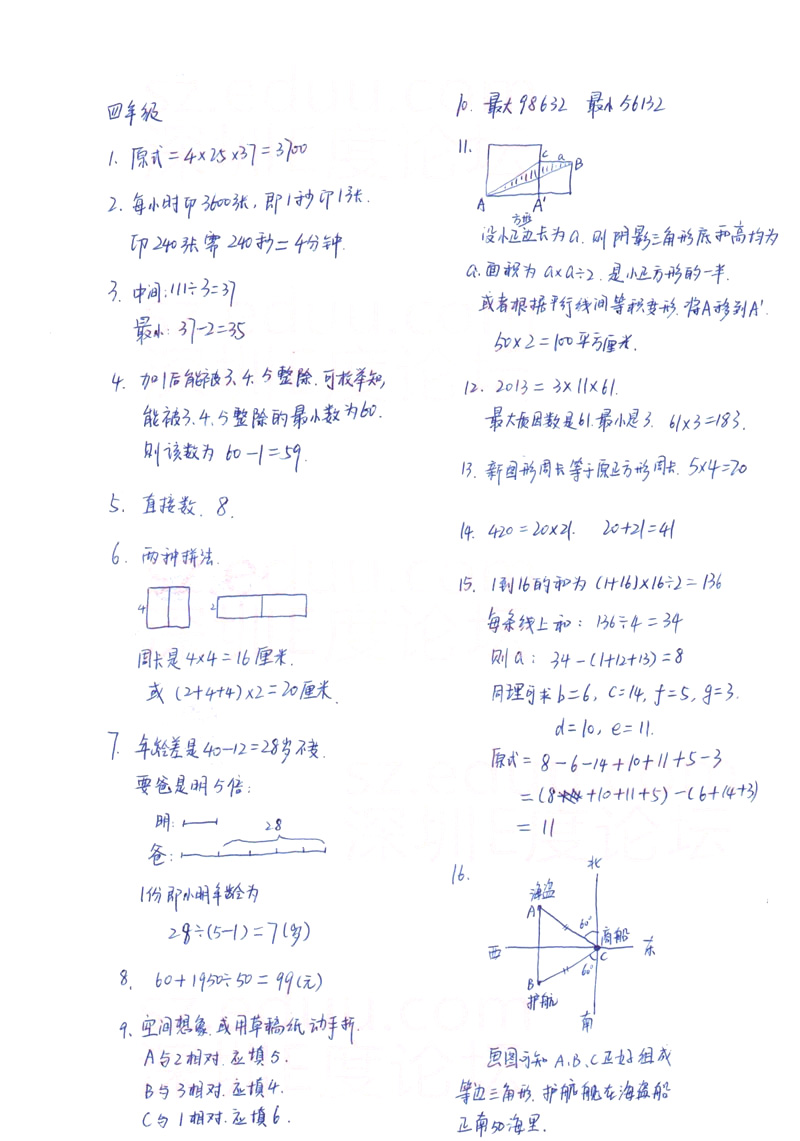 四年级
1. 原式=4×25×37=3700
2. 每小时印3600张,即1秒印1张.
印240张需240秒=4分钟.
3. 中间:111÷3=37
最小: 37-2=35
4. 加1后能被3、4、5整除.可枚举知,
能被3、4、5整除的最小数为60.
则该数为 60-1=59.
5. 直接数. 8.
6. 两种拼法.
4 2
周长是4×4=16厘米.
或 (2+4+4)×2=20厘米.
7. 年龄差是40-12=28岁不变.
要爸是明5倍:
明:
28
爸:
1份即小明年龄为
28÷(5-1)=7(岁)
8. 60+1950÷50=99(元)
9. 空间想象.或用草稿纸动手折.
A与2相对.应填5.
B与3相对.应填4.
C与1相对.应填6.
10. 最大98632 最小56132
11.
C a B
A A'
方形
设小正边长为a.则阴影三角形底和高均为
a.面积为a×a÷2.是小正方形的一半.
或者根据平行线间等积变形.将A移到A'.
50×2=100平方厘米.
12. 2013=3×11×61.
最大质因数是61.最小是3. 61×3=183.
13. 新图形周长等于原正方形周长. 5×4=20
14. 420=20×21. 20+21=41
15. 1到16的和为 (1+16)×16÷2=136
每条线上和: 136÷4=34
则a: 34-(1+12+13)=8
同理可求b=6, c=14, f=5, g=3.
d=10, e=11.
原式=8-6-14+10+11+5-3
=(8+10+11+5)-(6+14+3)
=11
16.
北
海盗
A 60° 商船
西 C 东
60°
B
护航
南
画图可知A、B、C正好组成
等边三角形.护航舰在海盗船
正南50海里.